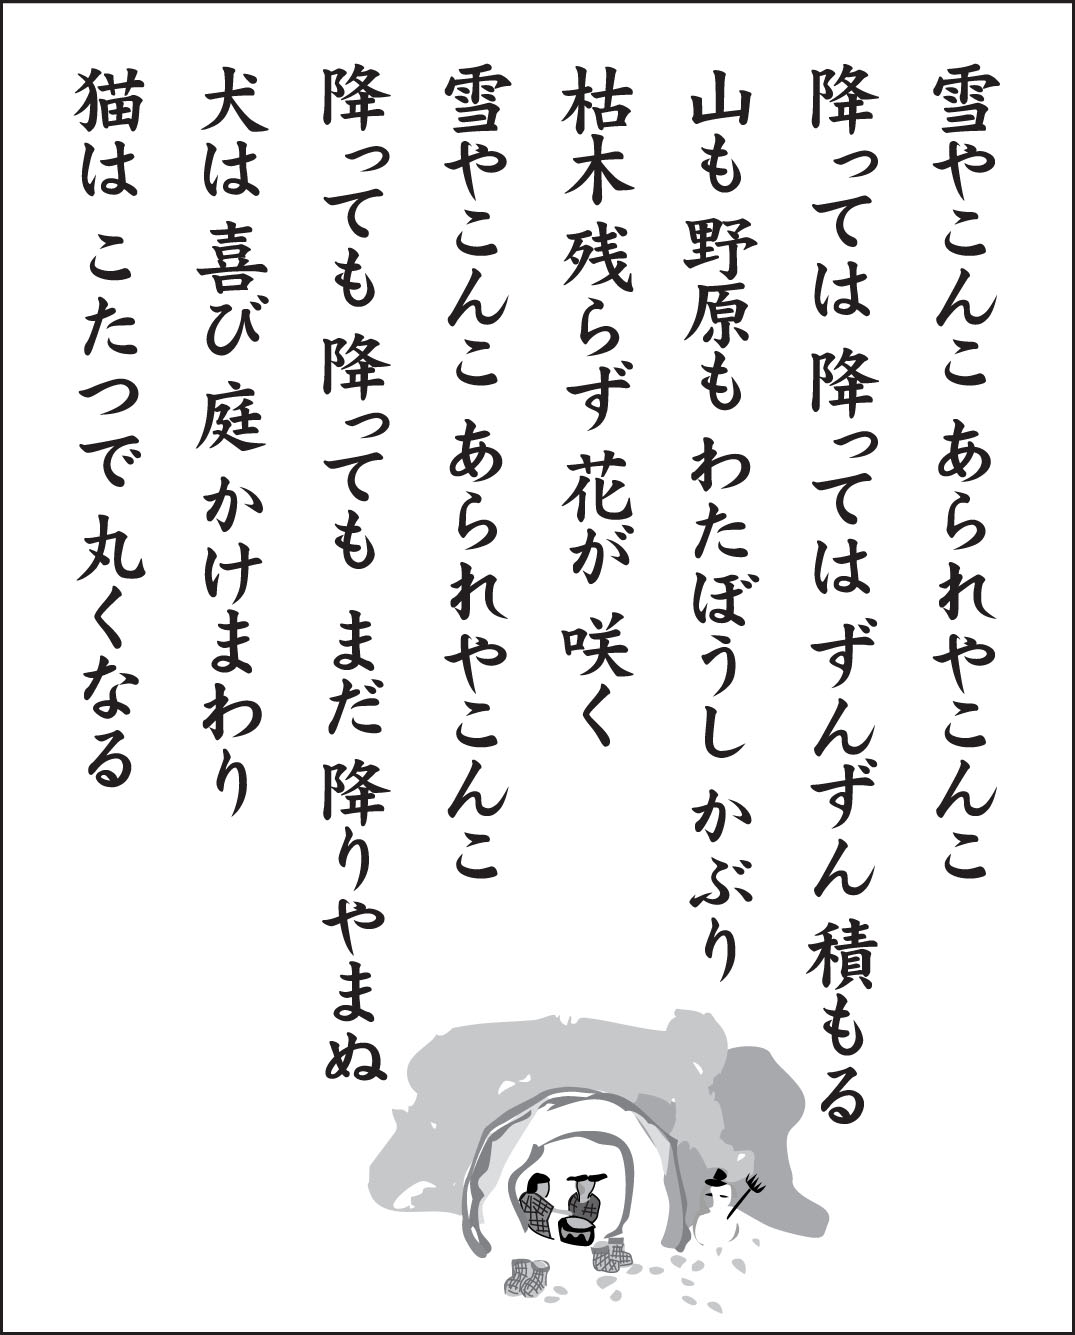 雪やこんこ あられやこんこ
降っては 降っては ずんずん 積もる
山も 野原も わたぼうし かぶり
枯木 残らず 花が 咲く
雪やこんこ あられやこんこ
降っても 降っても まだ 降りやまぬ
犬は 喜び 庭 かけまわり
猫は こたつで 丸くなる